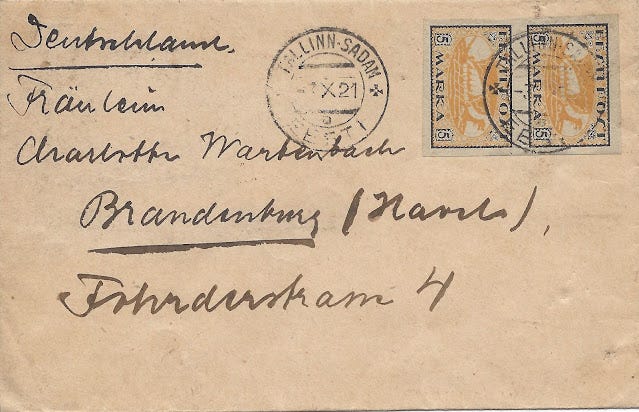 Deutschland.
TALLINN-SADAM
-7X21
a
EESTI
5 MARKA 5
EESTI POST
5 MARKA 5
EESTI POST
TALLINN-SADAM
EESTI
Fräulein
Charlotte Wartenbach
Brandenburg (Havel),
4